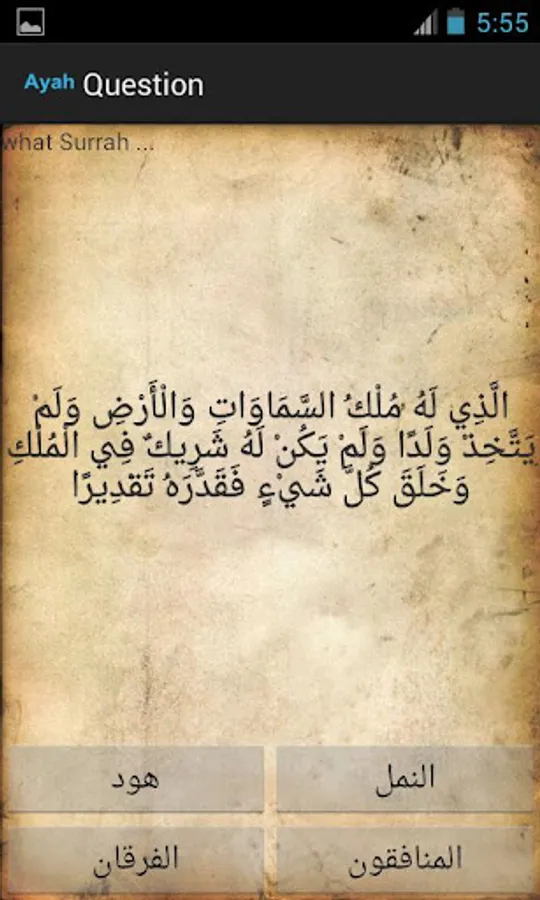 5:55
Ayah Question
what Surrah ...
الَّذِي لَهُ مُلْكُ السَّمَاوَاتِ وَالْأَرْضِ وَلَمْ
يَتَّخِذْ وَلَدًا وَلَمْ يَكُنْ لَهُ شَرِيكٌ فِي الْمُلْكِ
وَخَلَقَ كُلَّ شَيْءٍ فَقَدَّرَهُ تَقْدِيرًا
هود
النمل
الفرقان
المنافقون